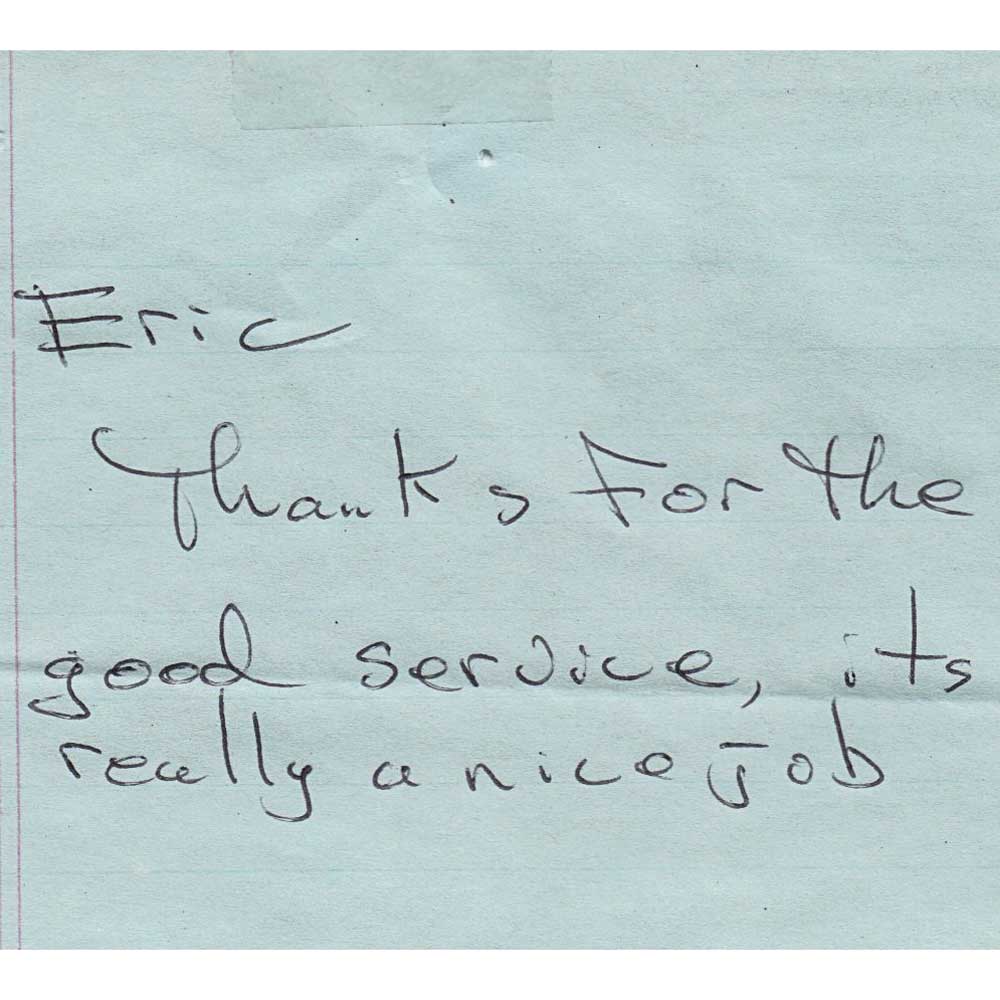 Eric
Thanks For the
good service, its
really a nice Job